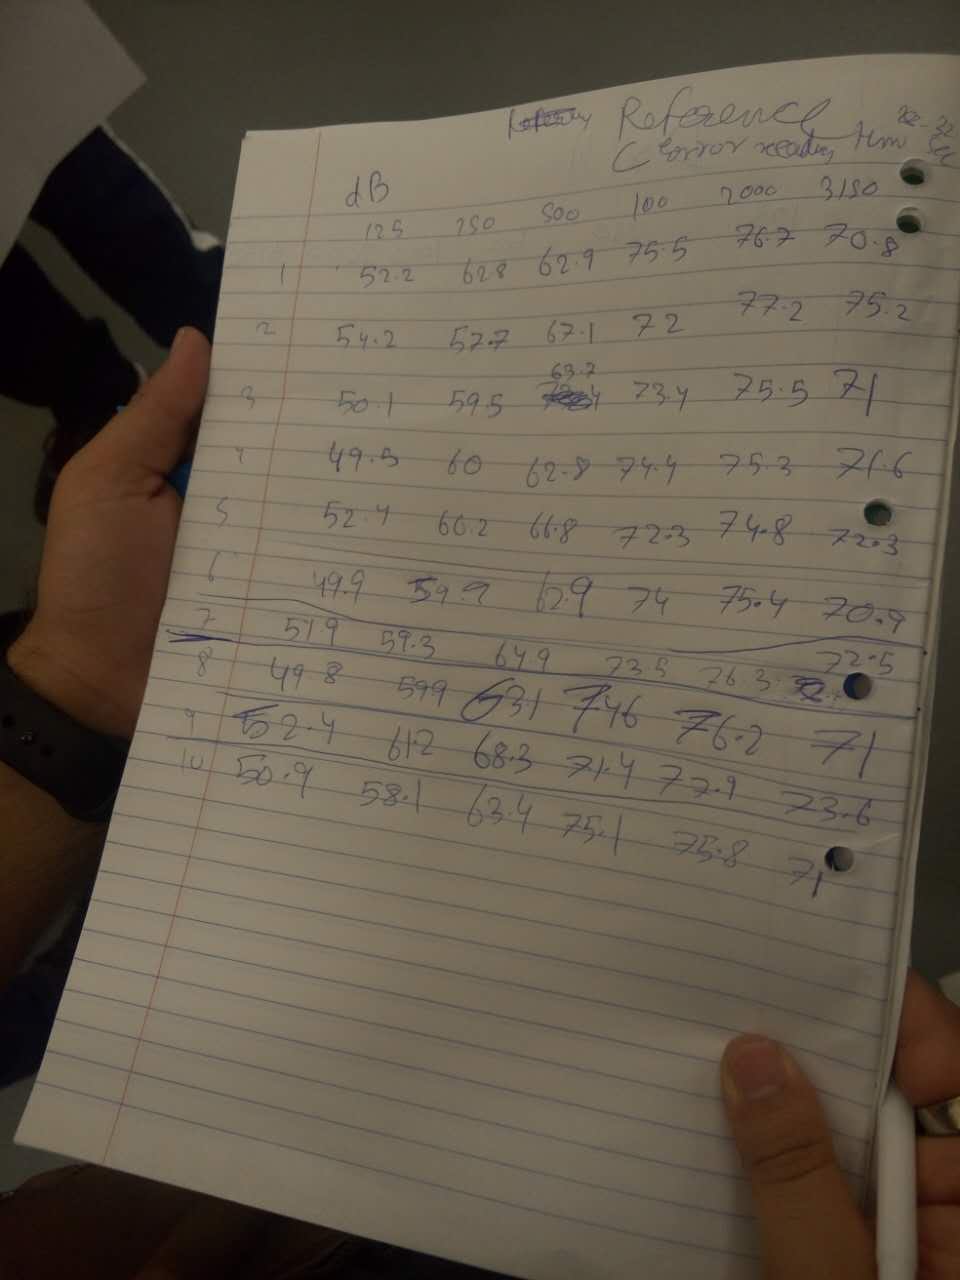 Reference
error reading
dB
125 250 500 100 2000 3150
1 52.2 62.8 62.9 75.5 76.7 70.8
2 54.2 57.7 67.1 72 77.2 75.2
63.7
3 50.1 59.5 73.4 75.5 71
4 49.5 60 62.8 74.4 75.3 71.6
5 52.4 60.2 66.8 72.3 74.8 72.3
6 49.9 59.9 62.9 74 75.4 70.9
7 51.9 59.3 64.9 73.5 76.3 72.5
8 49.8 59.9 63.1 74.6 76.2 71
9 52.4 61.2 68.3 71.4 77.9 73.6
10 50.9 58.1 63.4 75.1 75.8 71